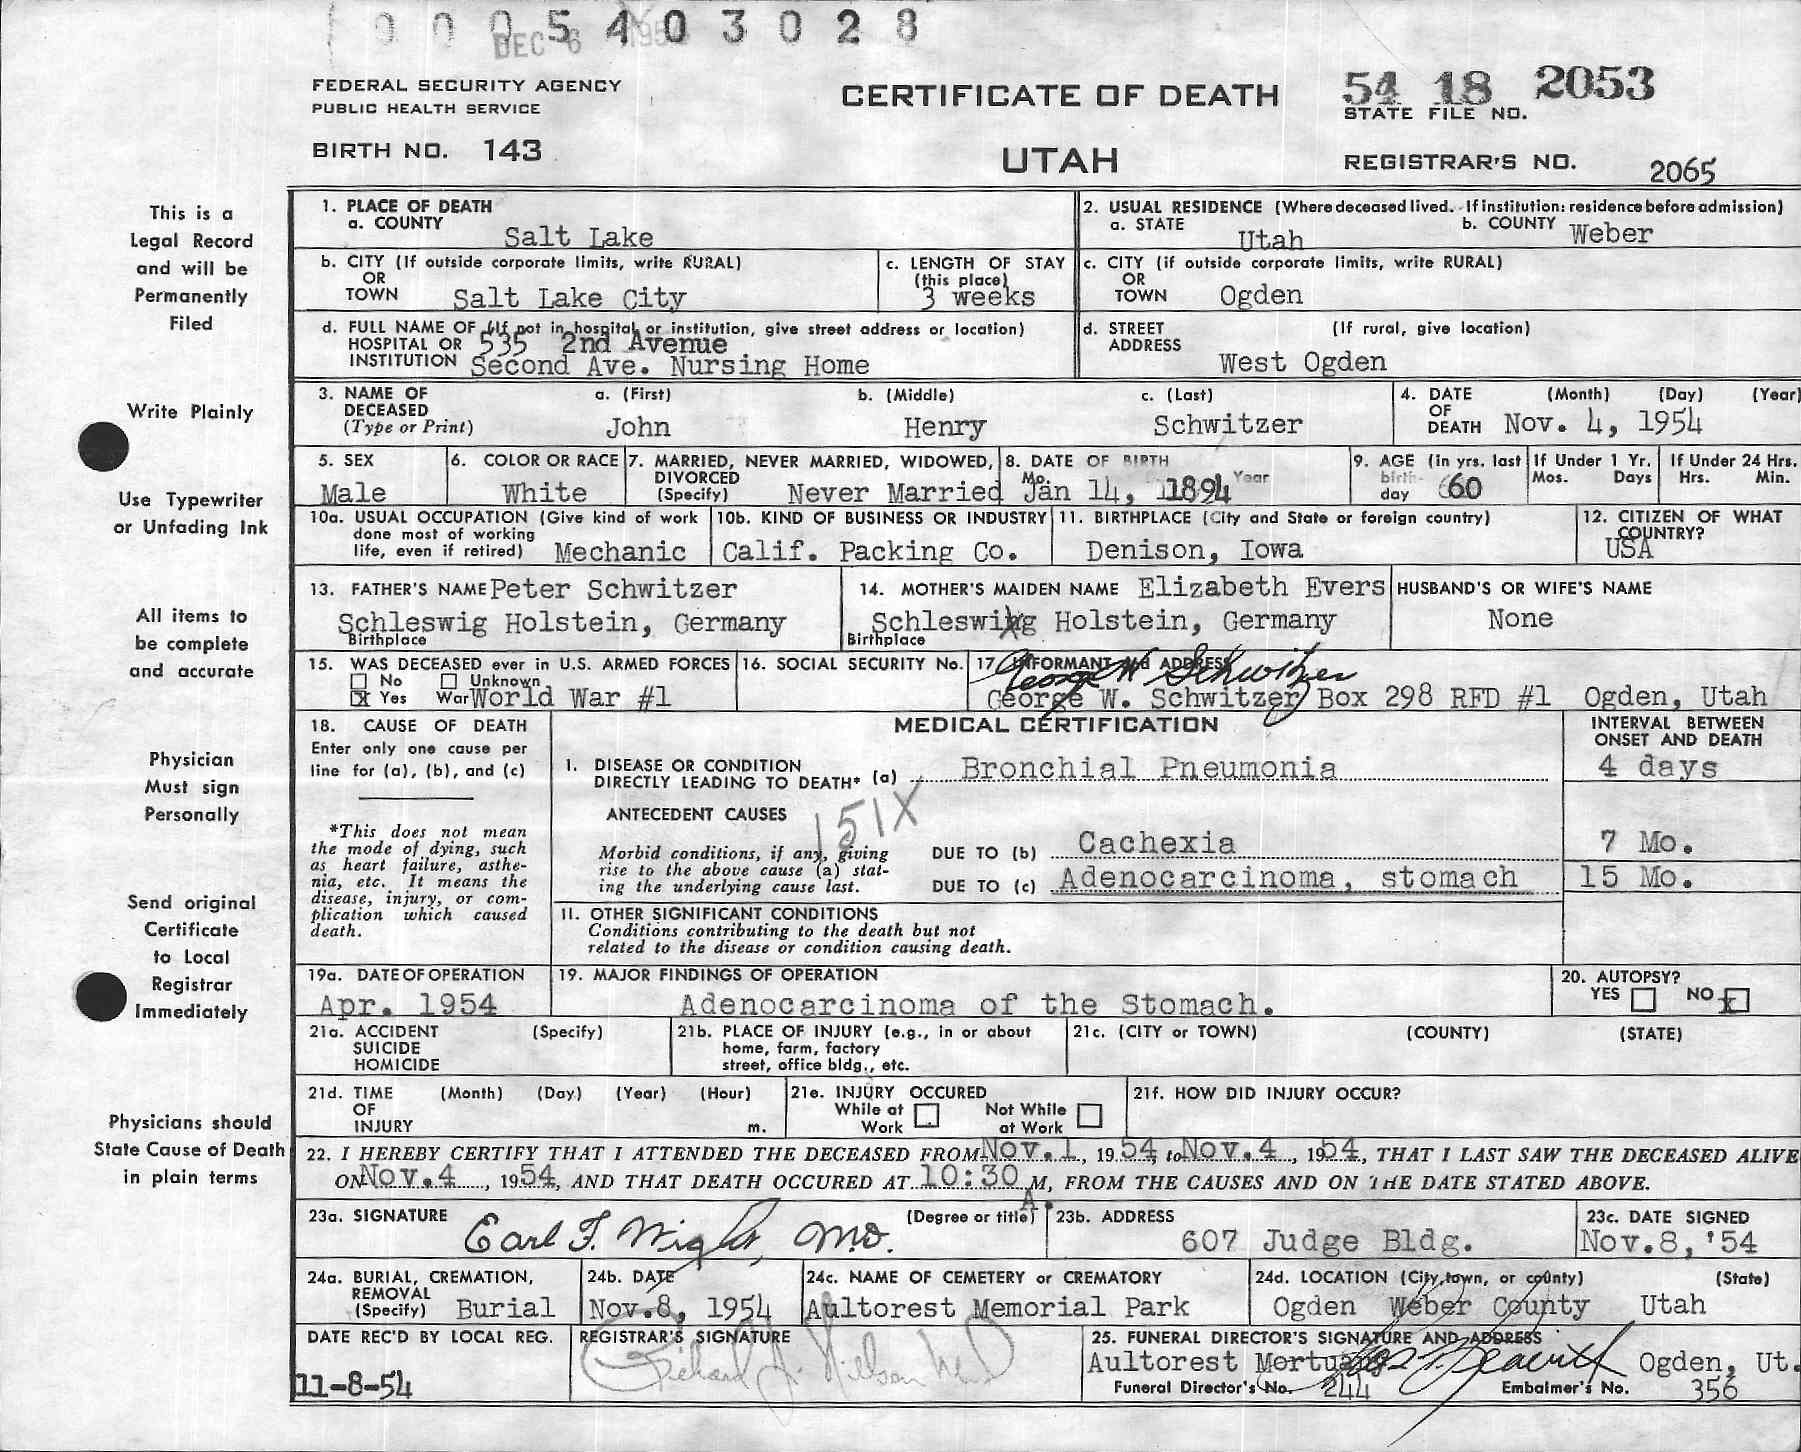 0 0 0 5 4 0 3 0 2 8
DEC 6 195
FEDERAL SECURITY AGENCY
PUBLIC HEALTH SERVICE
BIRTH NO. 143
CERTIFICATE OF DEATH
UTAH
54 18 2053
STATE FILE NO.
REGISTRAR'S NO. 2065
This is a
Legal Record
and will be
Permanently
Filed
Write Plainly
Use Typewriter
or Unfading Ink
All items to
be complete
and accurate
Physician
Must sign
Personally
Send original
Certificate
to Local
Registrar
Immediately
Physicians should
State Cause of Death
in plain terms
1. PLACE OF DEATH
a. COUNTY
Salt Lake
2. USUAL RESIDENCE (Where deceased lived. If institution: residence before admission)
a. STATE Utah b. COUNTY Weber
b. CITY (If outside corporate limits, write RURAL)
OR
TOWN Salt Lake City
c. LENGTH OF STAY
(this place)
3 weeks
c. CITY (if outside corporate limits, write RURAL)
OR
TOWN Ogden
d. FULL NAME OF (If not in hospital or institution, give street address or location)
HOSPITAL OR 535 2nd Avenue
INSTITUTION Second Ave. Nursing Home
d. STREET (If rural, give location)
ADDRESS
West Ogden
3. NAME OF a. (First) b. (Middle) c. (Last)
DECEASED
(Type or Print) John Henry Schwitzer
4. DATE (Month) (Day) (Year)
OF
DEATH Nov. 4, 1954
5. SEX
Male
6. COLOR OR RACE
White
7. MARRIED, NEVER MARRIED, WIDOWED,
DIVORCED
(Specify) Never Married
8. DATE OF BIRTH
Mo. Year
Jan 14, 1894
9. AGE (in yrs. last
birth-
day 60
If Under 1 Yr.
Mos. Days
If Under 24 Hrs.
Hrs. Min.
10a. USUAL OCCUPATION (Give kind of work
done most of working
life, even if retired) Mechanic
10b. KIND OF BUSINESS OR INDUSTRY
Calif. Packing Co.
11. BIRTHPLACE (City and State or foreign country)
Denison, Iowa
12. CITIZEN OF WHAT
COUNTRY?
USA
13. FATHER'S NAME Peter Schwitzer
Schleswig Holstein, Germany
Birthplace
14. MOTHER'S MAIDEN NAME Elizabeth Evers
Schleswig Holstein, Germany
Birthplace
HUSBAND'S OR WIFE'S NAME
None
15. WAS DECEASED ever in U.S. ARMED FORCES
No Unknown
x Yes War World War #1
16. SOCIAL SECURITY No.
17. INFORMANT and ADDRESS
George W Schwitzer
George W. Schwitzer Box 298 RFD #1 Ogden, Utah
18. CAUSE OF DEATH
Enter only one cause per
line for (a), (b), and (c)
*This does not mean
the mode of dying, such
as heart failure, asthe-
nia, etc. It means the
disease, injury, or com-
plication which caused
death.
MEDICAL CERTIFICATION
INTERVAL BETWEEN
ONSET AND DEATH
I. DISEASE OR CONDITION
DIRECTLY LEADING TO DEATH* (a) Bronchial Pneumonia 4 days
ANTECEDENT CAUSES
151X
Morbid conditions, if any, giving
rise to the above cause (a) stat-
ing the underlying cause last.
DUE TO (b) Cachexia 7 Mo.
DUE TO (c) Adenocarcinoma, stomach 15 Mo.
II. OTHER SIGNIFICANT CONDITIONS
Conditions contributing to the death but not
related to the disease or condition causing death.
19a. DATE OF OPERATION
Apr. 1954
19. MAJOR FINDINGS OF OPERATION
Adenocarcinoma of the Stomach.
20. AUTOPSY?
YES NO x
21a. ACCIDENT (Specify)
SUICIDE
HOMICIDE
21b. PLACE OF INJURY (e.g., in or about
home, farm, factory
street, office bldg., etc.
21c. (CITY or TOWN) (COUNTY) (STATE)
21d. TIME (Month) (Day) (Year) (Hour)
OF
INJURY m.
21e. INJURY OCCURED
While at Work
Not While at Work
21f. HOW DID INJURY OCCUR?
22. I HEREBY CERTIFY THAT I ATTENDED THE DECEASED FROM Nov. 1, 1954, to Nov. 4, 1954, THAT I LAST SAW THE DECEASED ALIVE
ON Nov. 4, 1954, AND THAT DEATH OCCURED AT 10:30 A.M, FROM THE CAUSES AND ON THE DATE STATED ABOVE.
23a. SIGNATURE (Degree or title)
Earl F. Wight, M.D.
23b. ADDRESS
607 Judge Bldg.
23c. DATE SIGNED
Nov.8, '54
24a. BURIAL, CREMATION,
REMOVAL
(Specify) Burial
24b. DATE
Nov.8, 1954
24c. NAME OF CEMETERY or CREMATORY
Aultorest Memorial Park
24d. LOCATION (City, town, or county) (State)
Ogden Weber County Utah
DATE REC'D BY LOCAL REG.
11-8-54
REGISTRAR'S SIGNATURE
Richard A. Nielson
25. FUNERAL DIRECTOR'S SIGNATURE AND ADDRESS
Aultorest Mortuary Ogden, Ut.
Funeral Director's No. 244 Embalmer's No. 356